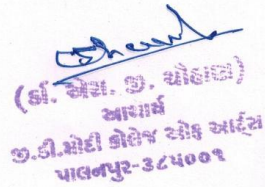 (ડૉ. એસ. જી. ચૌહાણ)
આચાર્ય
જી.ડી.મોદી કોલેજ ઓફ આર્ટ્સ
પાલનપુર-૩૮૫૦૦૧